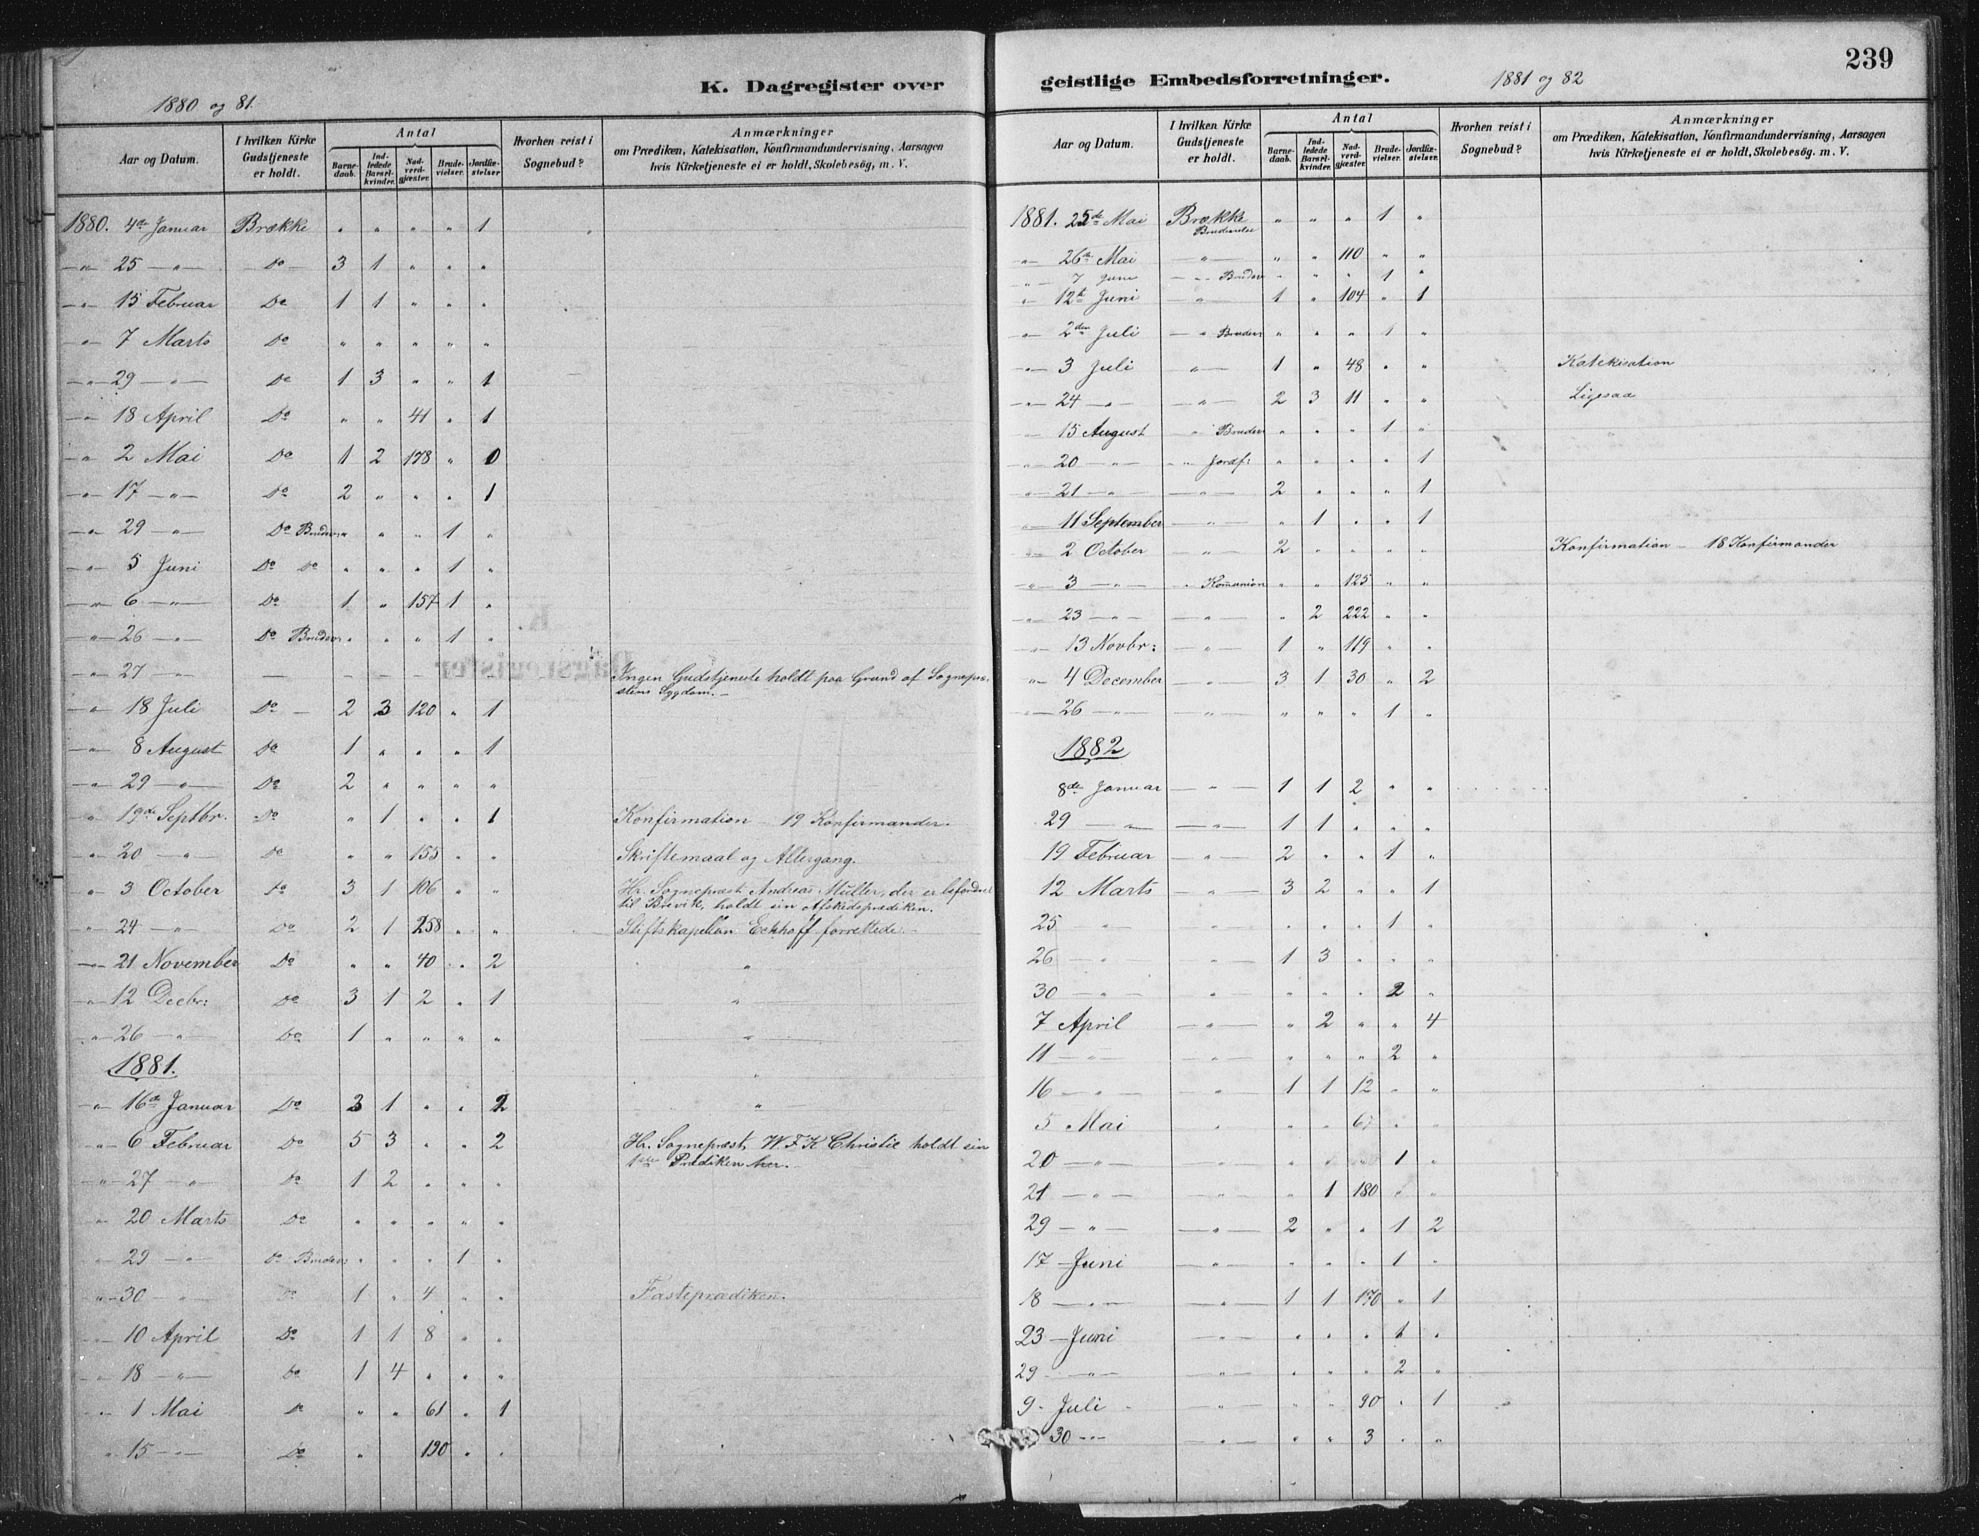 239
K. Dagregister over geistlige Embedsforretninger.
1880 og 81.
Aar og Datum. I hvilken Kirke Gudstjeneste er holdt. Antal Barnedaab. Indledede Barselkvinder. Nadverdgjæster. Brudevielser. Jordfæstelser. Hvorhen reist i Sognebud? Anmærkninger om Prædiken, Katekisation, Konfirmandundervisning, Aarsagen hvis Kirketjeneste ei er holdt, Skolebesög, m. V.
1880. 4de Januar Brække " " " " 1
-"- 25 -"- Do 3 1 " " "
-"- 15 Februar Do 1 1 " " "
-"- 7 Marts Do " " " " "
-"- 29 -"- Do 1 3 " " 1
-"- 18 April Do " " 41 " 1
-"- 2 Mai Do 1 2 178 " 0
-"- 17 -"- Do 2 " " " 1
-"- 29 -"- Do Brudev: " " " 1 "
" 5 Juni Do Do " " " 1 "
-"- 6 -"- Do 1 " 157 1 "
-"- 26 -"- Do Brudev: " " " 1 "
-"- 27 -"- — — — — — Ingen Gudstjeneste holdt paa Grund af Sognepræ-
stens Sygdom.-
-"- 18 Juli Do - 2 3 120 " 1
-"- 8 August Do 1 " " " 1
-"- 29 -"- Do 2 " " " "
" 19de Septbr. Do " 1 " " 1 Konfirmation 19 Konfirmander.
" 20 -"- Do " " 155 " " Skriftemaal og Altergang.
" 3 October Do 3 1 106 " " Hr. Sognepræst Andreas Müller, der er befordret
til Brevik, holdt sin Afskedsprædiken.
" 24 -"- Do 2 1 258 " " Stiftskapellan Eckhoff forrettede.
-"- 21 November Do " " 40 " 2 "
" 12 Decbr: Do 3 1 2 " 1 "
" 26 " Do 1 " " " " "
1881. "
" 16de Januar Do 3 1 " " 2 "
" 6 Februar Do 5 3 " " 2 Hr. Sognepræst W F K Christie holdt sin
1ste Prædiken her.-
" 27 " Do 1 2 " " "
" 20 Marts Do " " " " "
" 29 -"- Do Brudev: " " " 1 "
" 30 " Do 1 " 4 " " Fasteprædiken.
" 10 April Do 1 1 8 " "
" 18 -"- Do 1 4 " " "
" 1 Mai Do " " 61 " 1
" 15 -"- Do " 190 " "
1881 og 82
Aar og Datum. I hvilken Kirke Gudstjeneste er holdt. Antal Barnedaab. Indledede Barselkvinder. Nadverdgjæster. Brudevielser. Jordfæstelser. Hvorhen reist i Sognebud? Anmærkninger om Prædiken, Katekisation, Konfirmandundervisning, Aarsagen hvis Kirketjeneste ei er holdt, Skolebesög. m. V.
1881. 25de Mai Brække " " " 1 "
-"- 26de Mai -"- " " 110 " "
-"- 7 Juni -"- Brudev " " " 1 "
" 12te Juni -"- 1 " 104 " 1
-"- 2den Juli -"- Brudev: " " " 1 "
-"- 3 Juli -"- 1 " 48 " " Katekisation
-"- 24 -"- -"- 2 3 11 " " Ligesaa
-"- 15 August " Brudev " " " 1 "
-"- 20 -"- " Jordf: " " " " 1
-"- 21 -"- -"- 2 " " " 1
-"- 11 September -"- " 1 " " 1
-"- 2 October -"- 2 " " " " Konfirmation - 18 Konfirmander
" 3 -"- " Komunion " " 125 " "
-"- 23 -"- -"- " 2 222 " "
" 13 Novbr: -"- 1 " 119 " "
-"- 4 December -"- 3 1 30 " 2
-"- 26 -"- -"- " " " 1 "
1882
8de Januar -"- 1 1 2 " "
29 -"- -"- 1 1 " " "
19 Februar -"- 2 " " 1 "
12 Marts -"- 3 2 " " 1
25 " -"- " " " 1 "
26 -"- -"- 1 3 " " "
30 -"- " " " " 2 "
7 April -"- " 2 " " 4
11 -"- -"- " " " 2 "
16 -"- " 1 1 12 " "
5 Mai " " " " "
20 -"- " " " 1 "
21 -"- " " 1 180 " "
29 -"- -"- 2 " " 1 2
17 Juni -"- " " " 1 "
18 -"- -"- 1 1 170 " 1
23 Juni " " " " 1 "
29 -"- " " " " 2 "
9 Juli " " " 90 " 1
30 -"- " " " 3 " "